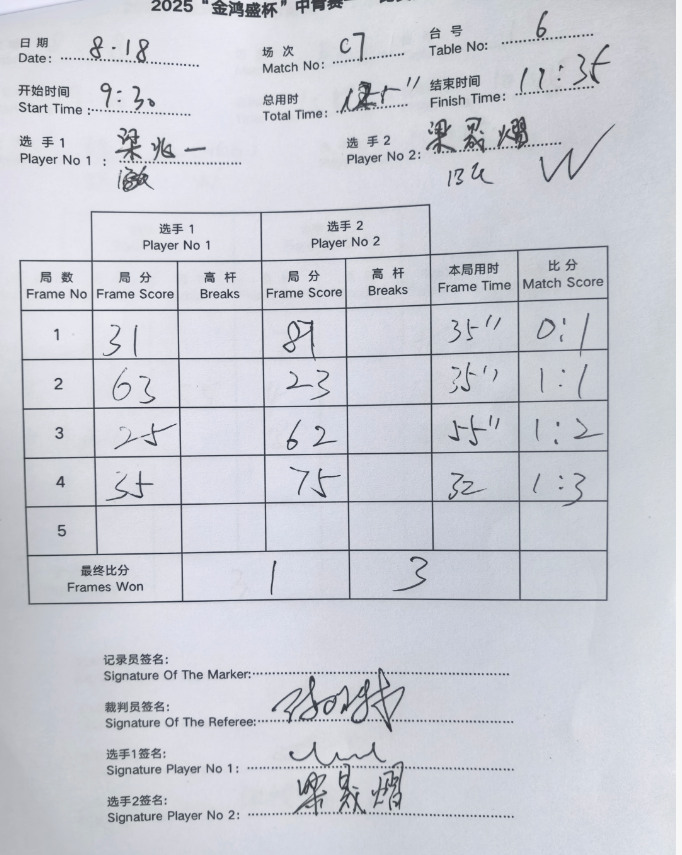 2025“金鸿盛杯”中青赛
日期 8.18 场次 C7 台号 6
Date: Match No: Table No:
开始时间 9:30 总用时 结束时间 11:35
Start Time: Total Time: Finish Time:
选手1 梁兆一 选手2 梁晸熠
Player No 1: Player No 2:
W
选手1 选手2
Player No 1 Player No 2
局数 局分 高杆 局分 高杆 本局用时 比分
Frame No Frame Score Breaks Frame Score Breaks Frame Time Match Score
1 31 35" 0:1
2 63 23 35" 1:1
3 25 62 55" 1:2
4 35 75 32 1:3
5
最终比分 1 3
Frames Won
记录员签名:
Signature Of The Marker:
裁判员签名:
Signature Of The Referee:
选手1签名:
Signature Player No 1:
选手2签名: 梁晸熠
Signature Player No 2: